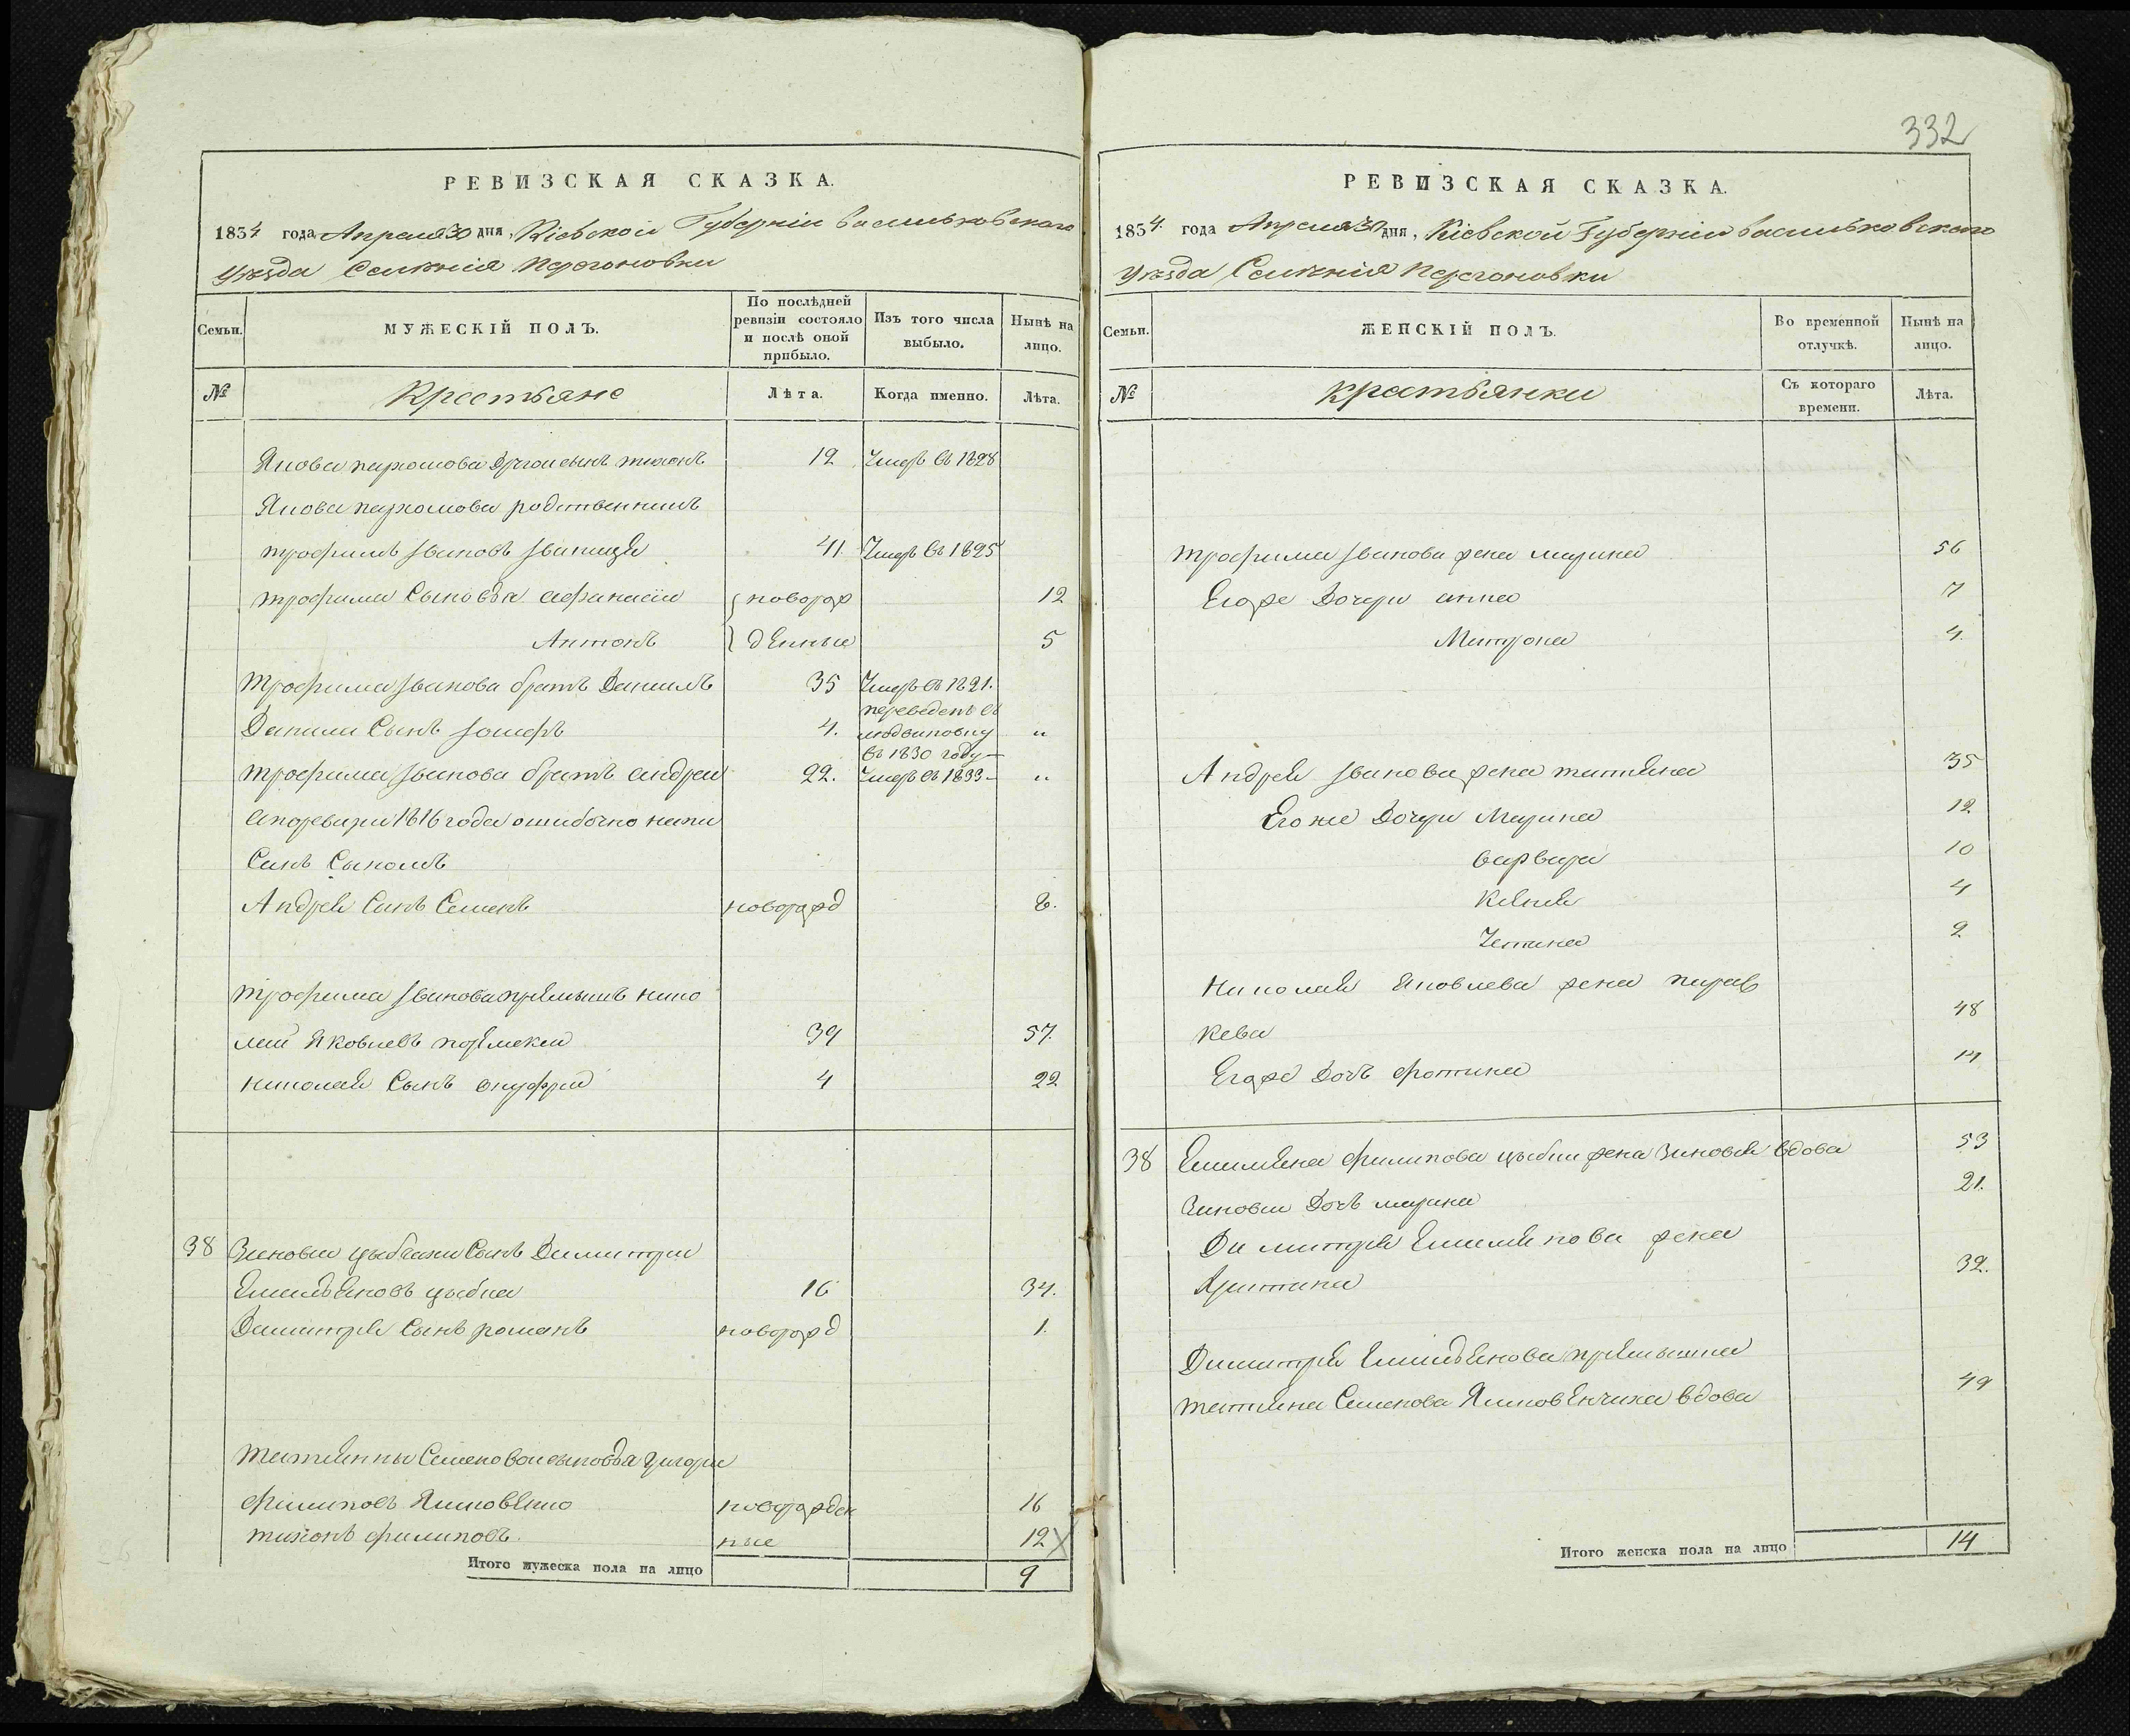 332
РЕВИЗСКАЯ СКАЗКА.
1834 года Апреля 30 дня, Кіевской Губерніи васильковского
Уѣзда Селѣнія Перегоновки
Семьи.
МУЖЕСКІЙ ПОЛЪ.
По послѣдней ревизіи состояло и послѣ оной прибыло.
Изъ того числа выбыло.
Нынѣ на лицо.
№
Крестьяне
Лѣта.
Когда именно.
Лѣта.
Якова пархомова другои сынъ тихонъ 12 Умеръ въ 1828
Якова пархомова родственникъ
трофимъ Івановъ 41. Умеръ въ 1825
трофима Сыновья афанасій новорож 12
Антонъ дѣнные 5
Трофима Іванова братъ Данилъ 35 Умеръ въ 1821.
Данила Сынъ 4. переведенъ въ
въ 1830 году — "
трофима Іванова братъ андрей 22. Умеръ въ 1833 — "
апоревизіи 1816 года ошибочно напи
Санъ Сыномъ
Андрея Синъ Семенъ новорожд 8.
трофима Іванова приямышъ нико
лай Яковлевъ 39 57.
николая Сынъ онуфрій 4 22
38 Зиновіи цыбъ Сынъ Димитрій
Емильяновъ цыба 16 34.
Димитрія Сынъ романъ новорожд 1.
татьянны Семеновои сыновья григорій
филиповъ новорожден 16
тихонъ филиповъ. ные 12
Итого мужеска пола на лицо 9
РЕВИЗСКАЯ СКАЗКА.
1834. года Апреля 30 дня, Кіевской Губерніи васильковского
Уѣзда Селѣнія Перегоновки
Семьи.
ЖЕНСКІЙ ПОЛЪ.
Во временной отлучкѣ.
Нынѣ на лицо.
№
крестьянки
Съ котораго времени.
Лѣта.
трофима Іванова жена марина 56
Егоже Дочери анна 7
Матрона 4.
Андрея Іванова жена татіяна 35
Егоже Дочери Марина 12
варвара 10
Ксенія 4
Устина 2
Николая Яковлева жена парас
кева 48
Егоже Дочь фотина 14
38 Емиліяна филипова цыбы жена Зиновія вдова 53
Зиновіи Дочь марина 21.
Димитрія Емиліянова жена
Христина 32.
Димитрія Емильянова
татіяна Семенова вдова 49
Итого женска пола на лицо 14